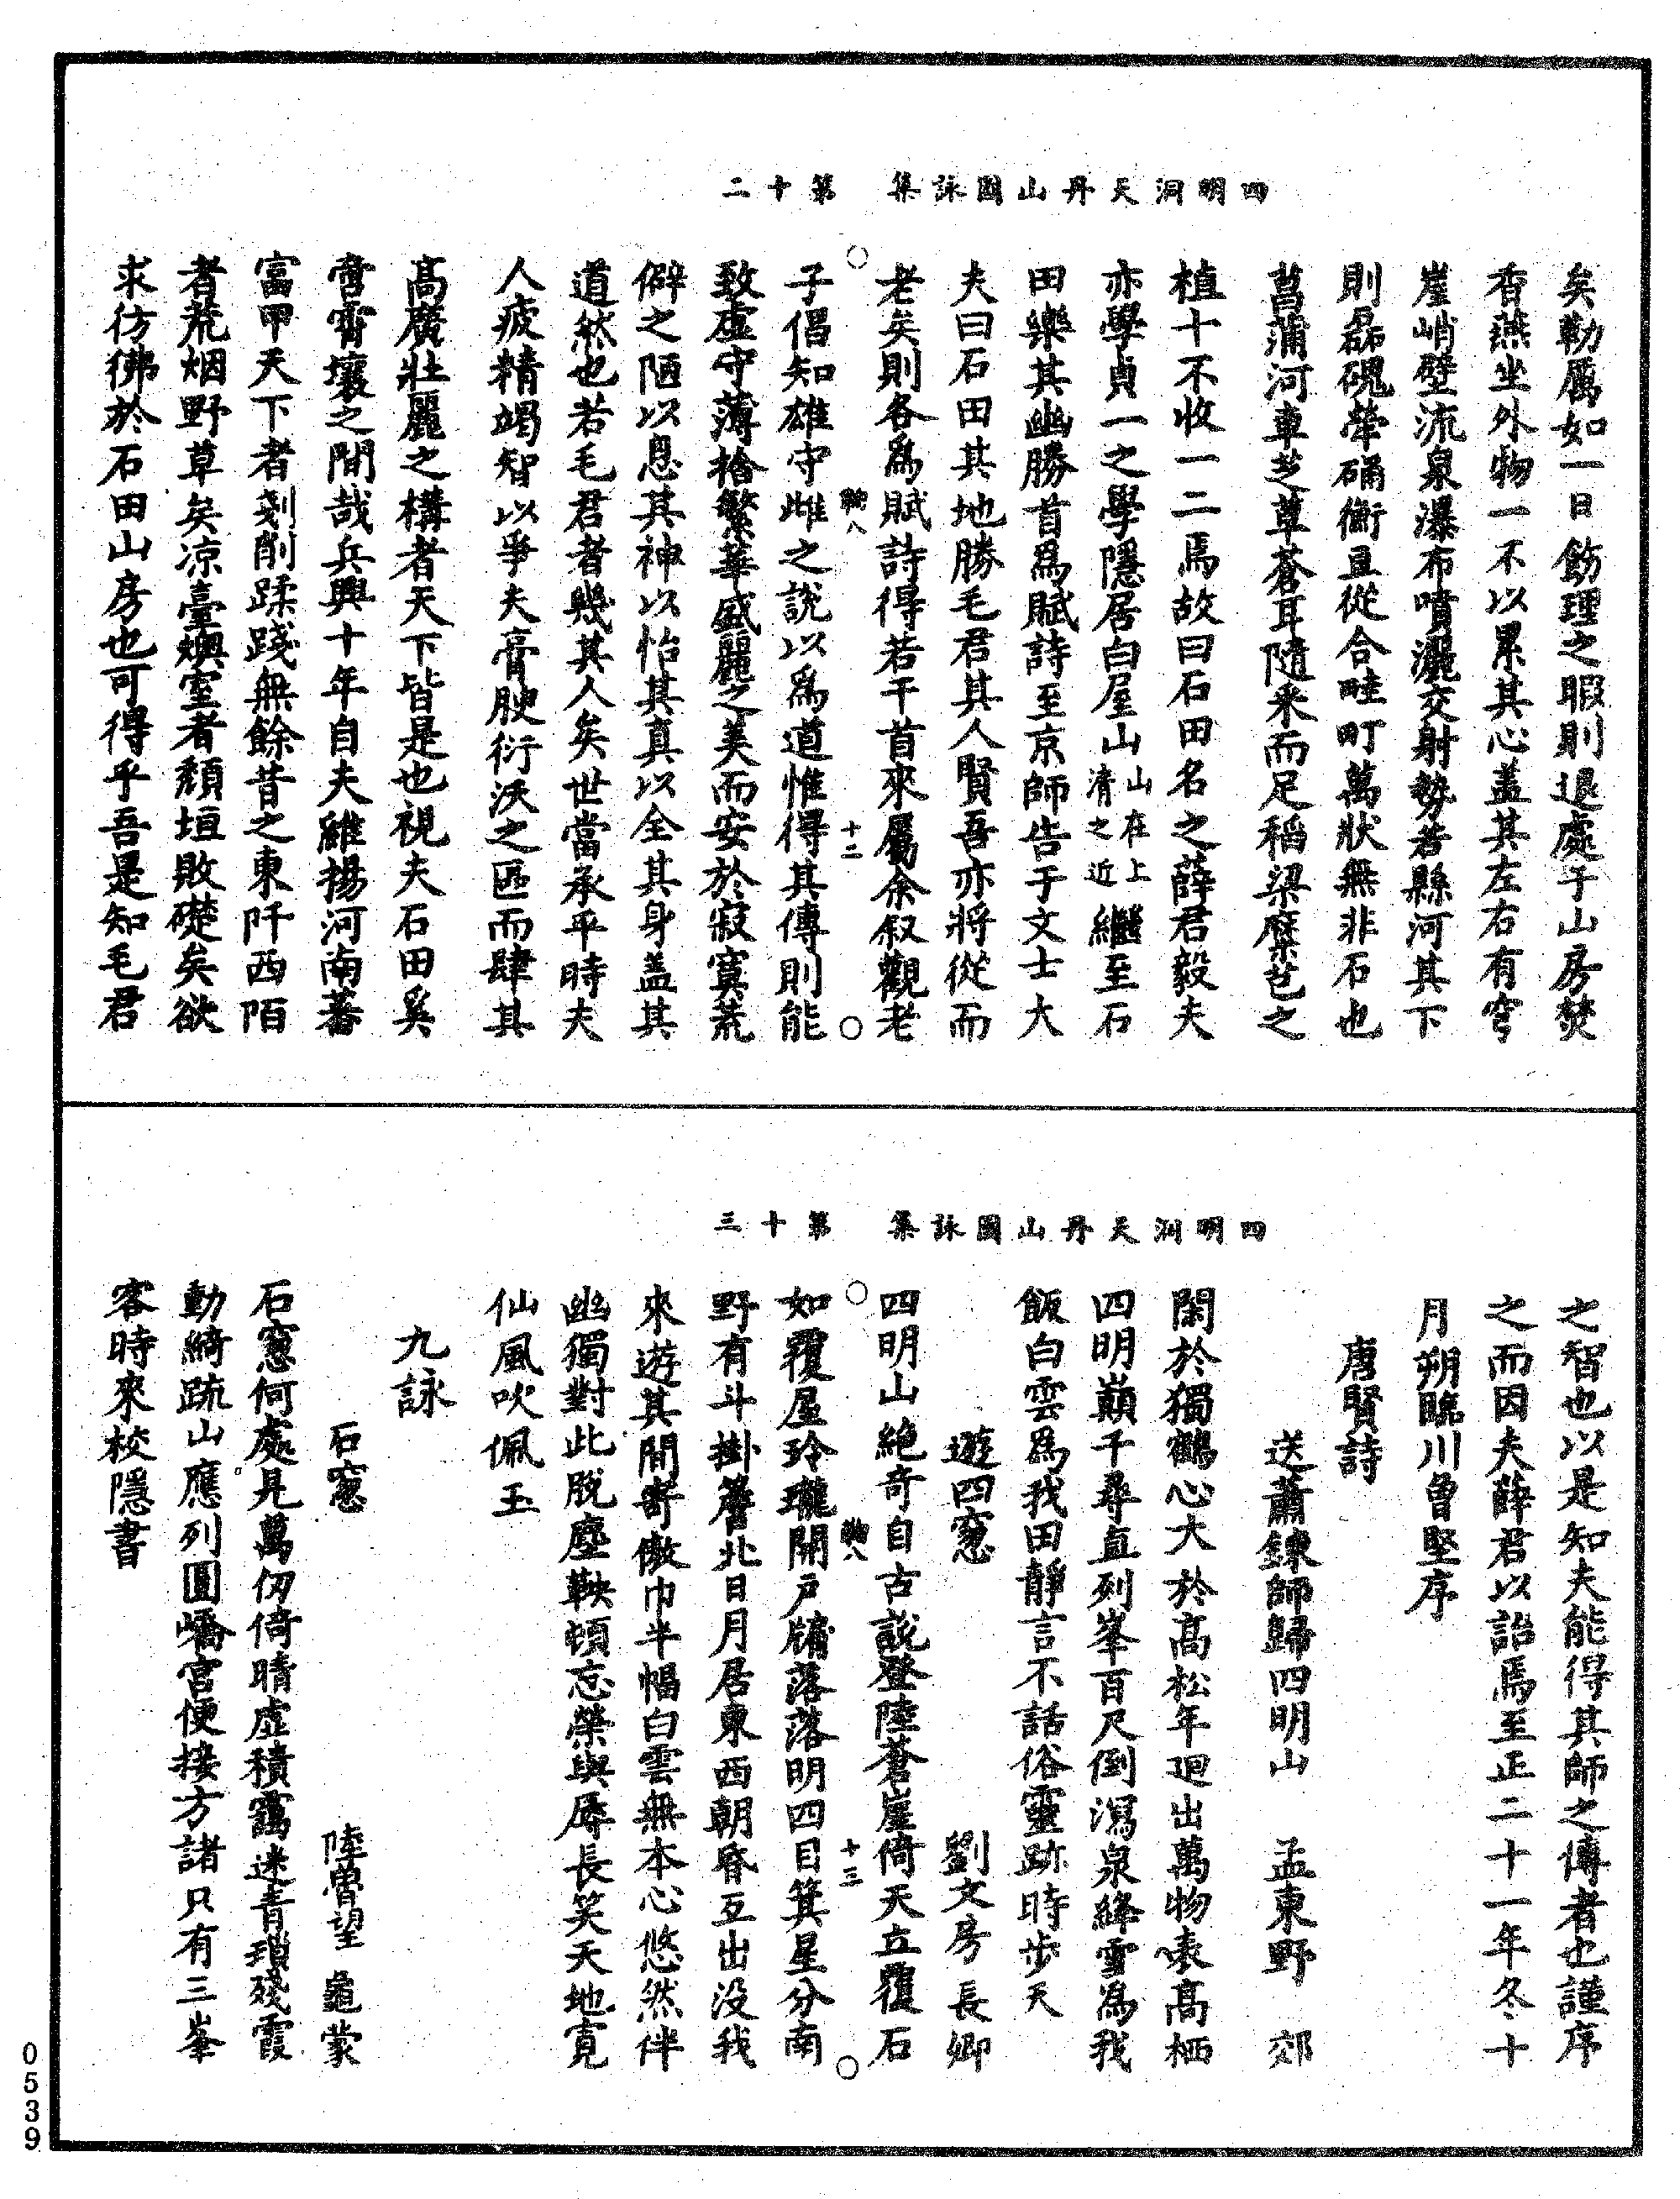 四明洞天丹山圖詠集　第十二
矣勤厲如一日飭理之暇則退處于山房焚
香燕坐外物一不以累其心盖其左右有穹
崖峭壁流泉瀑布噴灑交射勢若縣河其下
則磊磈犖硧衡亘從合畦町萬狀無非石也
菖蒲河車芝草蒼耳隨采而足稻粱穈芑之
植十不收一二焉故曰石田名之薛君毅夫
亦學貞一之學隱居白屋山山在上清之近繼至石
田樂其幽勝首爲賦詩至京師告于文士大
夫曰石田其地勝毛君其人賢吾亦將從而
老矣則各爲賦詩得若干首來屬余叙觀老
鞠八　十二
子倡知雄守雌之說以爲道惟得其傳則能
致虛守薄捨繁華盛麗之美而安於寂寞荒
僻之陋以息其神以怡其真以全其身盖其
道然也若毛君者幾其人矣世當承平時夫
人疲精竭智以爭夫膏腴衍沃之區而肆其
高廣壯麗之構者天下皆是也視夫石田奚
啻霄壤之間哉兵興十年自夫維揚河南蕃
富甲天下者剗削蹂踐無餘昔之東阡西陌
者荒烟野草矣凉臺燠室者頹垣敗礎矣欲
求彷彿於石田山房也可得乎吾是知毛君
四明洞天丹山圖詠集　第十三
之智也以是知夫能得其師之傳者也謹序
之而因夫薛君以詒焉至正二十一年冬十
月朔臨川曾堅序
唐賢詩
送蕭鍊師歸四明山　孟東野　郊
閑於獨鶴心大於高松年迥出萬物表高栖
四明巔千尋直列峯百尺倒瀉泉絳雪爲我
飯白雲爲我田靜言不話俗靈跡時步天
遊四窻　劉文房　長卿
四明山絶奇自古說登陸蒼崖倚天立覆石
鞠八　十三
如覆屋玲瓏開戶牖落落明四目箕星分南
野有斗掛簷北日月居東西朝昏互出没我
來遊其間寄傲巾半幅白雲無本心悠然伴
幽獨對此脫塵鞅頓忘榮與辱長笑天地寬
仙風吹佩玉
九詠
石窻　陸魯望　龜蒙
石窻何處見萬仞倚晴虛積靄迷青瑣殘霞
動綺疏山應列圓嶠宫便接方諸只有三峯
客時來校隱書
0539